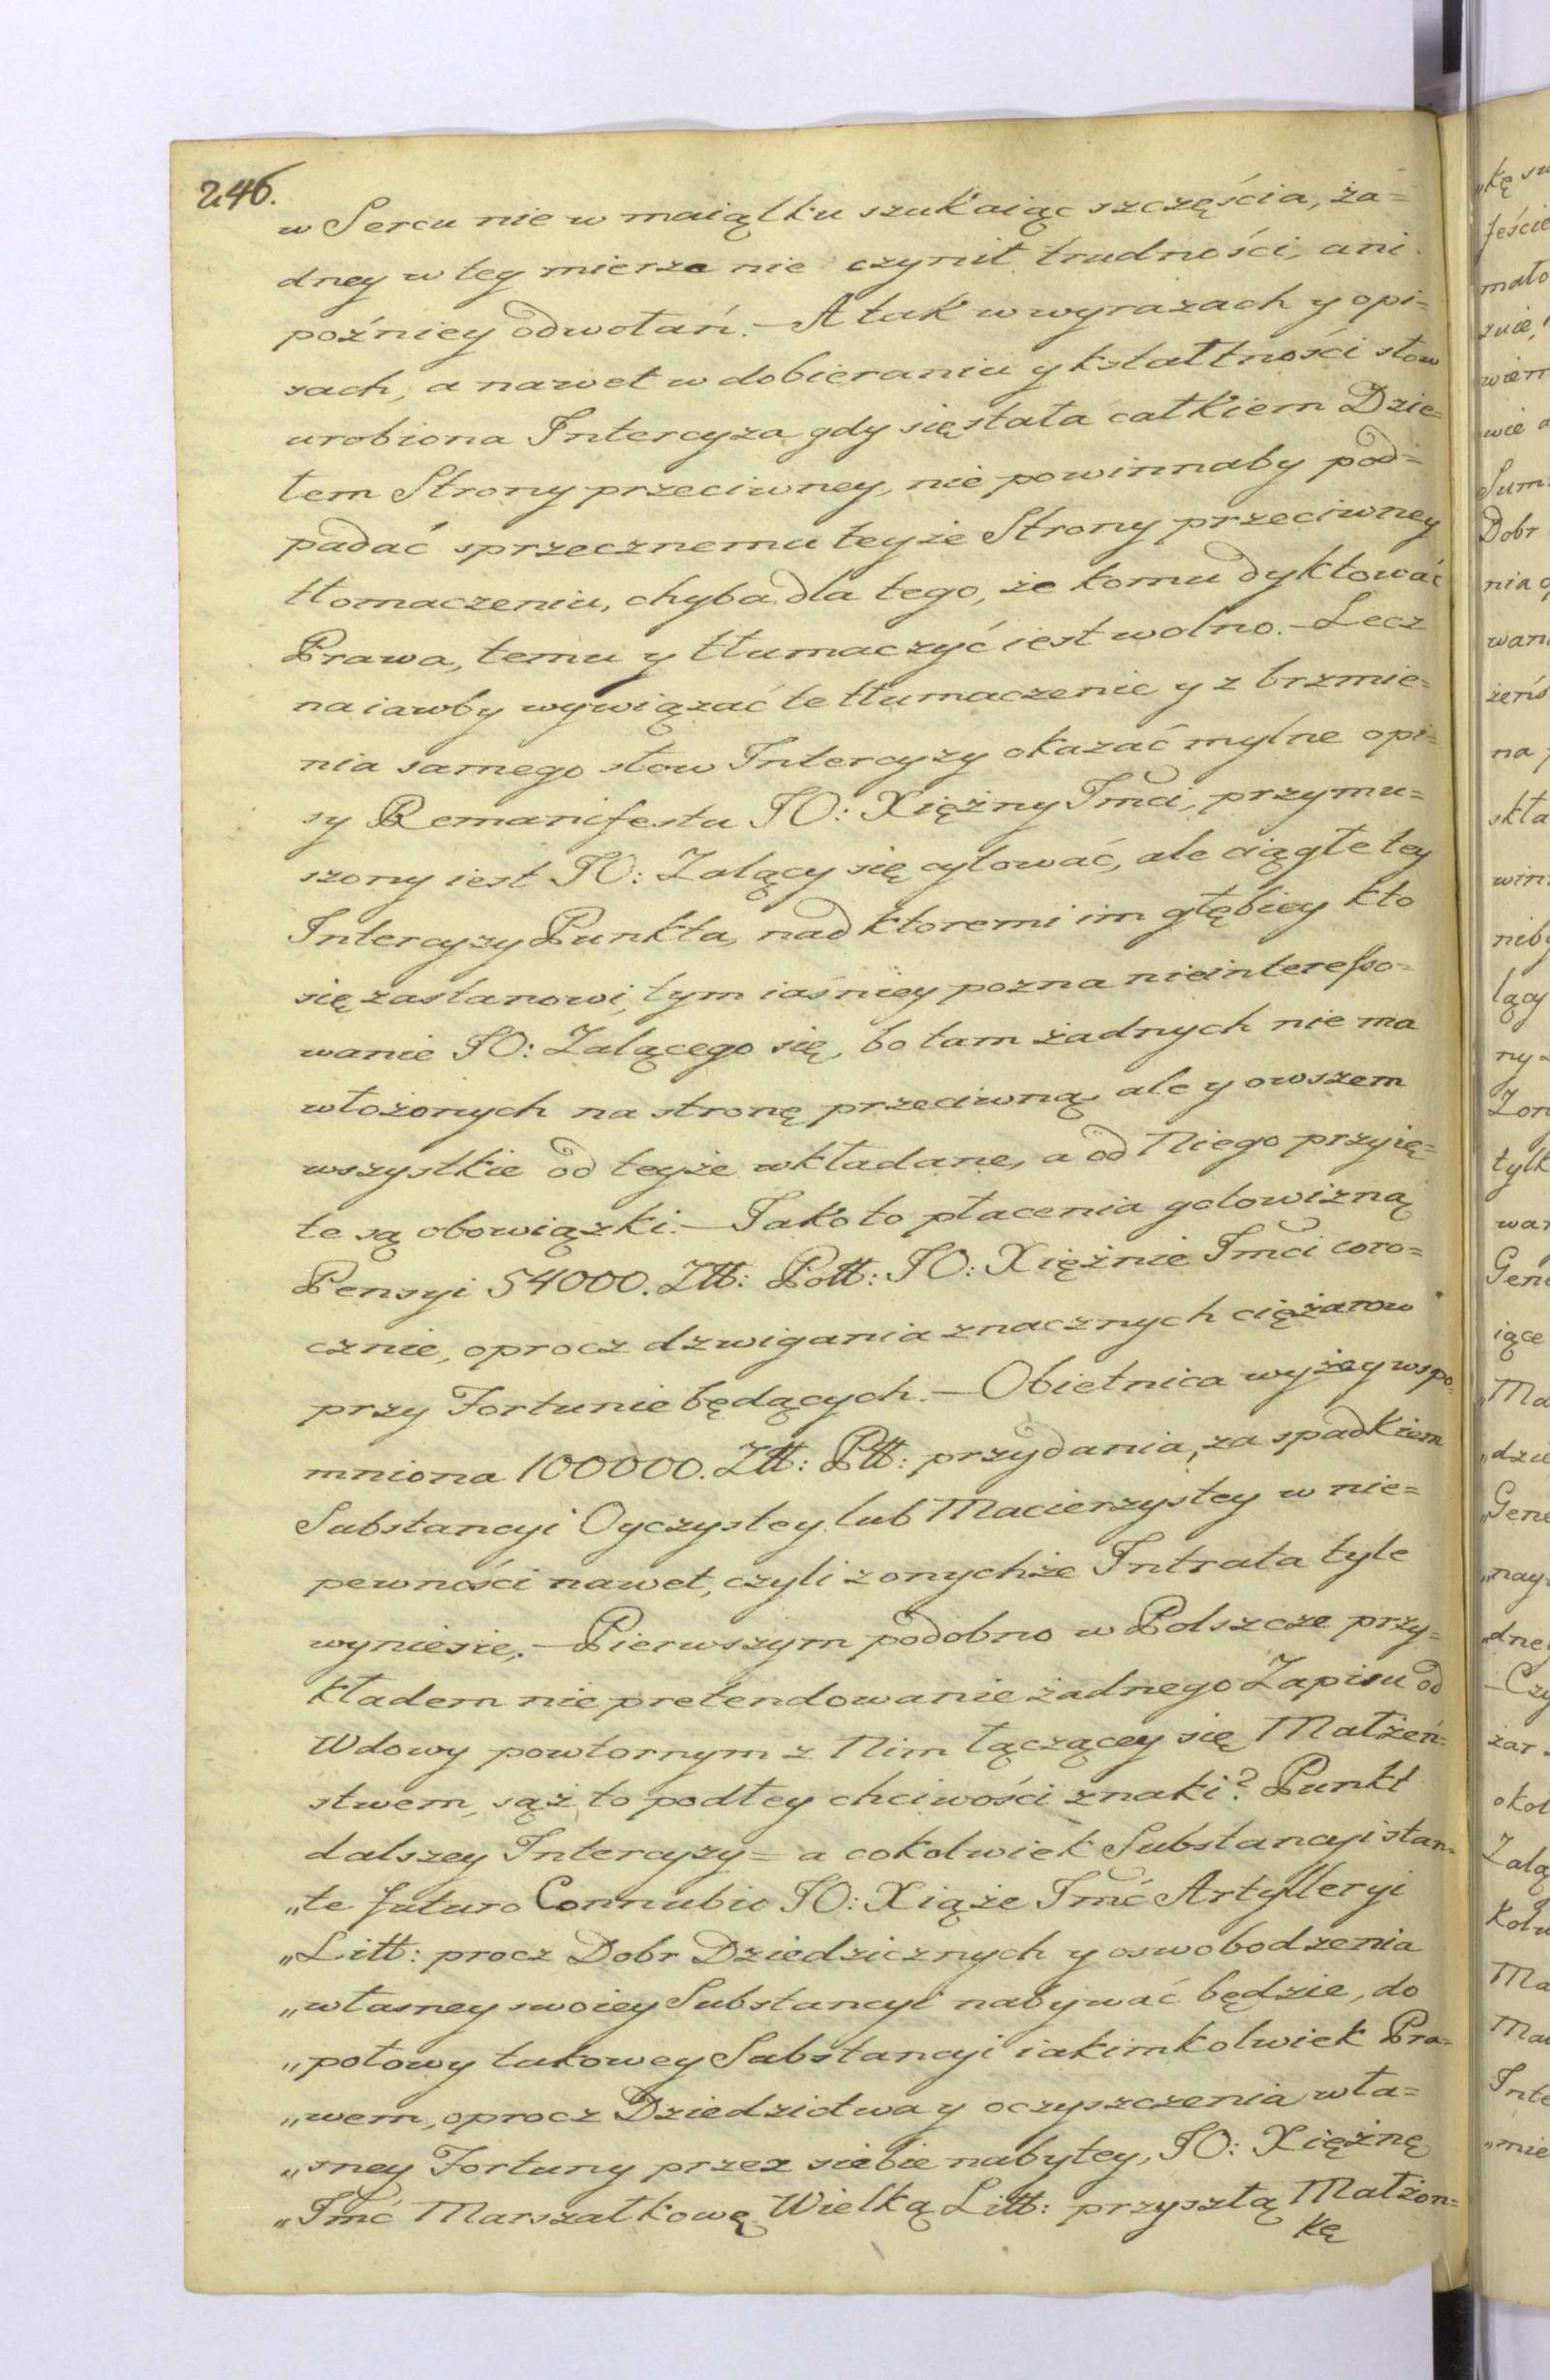 246.
w Sercu nie w maiątku szukaiąc szczęścia, ża=
dney w tey mierze nie czynił trudności, ani
poźniey odwołań. — A tak w wyrazach y opi=
sach, a nawet w dobieraniu y kształtności słow
urobiona Intercyza gdy się stała całkiem Dzie=
łem Strony przeciwney, nie powinnaby pod=
padać sprzecznemu teyże Strony przeciwney
tłomaczeniu, chyba dla tego, że komu dyktować
Prawa, temu y tłumaczyć iest wolno. — Lecz
na iawby wywiązać te tłumaczenie y z brzmie=
nia samego słow Intercyzy okazać mylne opi=
sy Remanifestu JO: Xiężny Jmci, przymu=
szony iest JO: Żalący się cytować, ale ciągłe tey
Intercyzy Punkta, nad ktoremi im głębiey kto
się zastanowi, tym iaśniey pozna nieinteresso=
wanie JO: Żalącego się, bo tam żadnych nie ma
włożonych na stronę przeciwną, ale y owszem
wszystkie od teyże wkładane, a od Niego przyię=
te są obowiązki. — Jako to płacenia gotowizną
Pensyi 54000. Złł: Poll: JO: Xiężnie Jmci coro=
cznie, oprocz dzwigania znacznych ciężarow
przy Fortunie będących. — Obietnica wyżey wspo=
mniona 100000. Złł: Pll: przydania, za spadkiem
Substancyi Oyczystey lub Macierzystey w nie=
pewności nawet, czyli z onychże Intrata tyle
wyniesie. — Pierwszym podobno w Polszcze przy=
kładem nie pretendowanie żadnego Zapisu od
Wdowy powtornym z Nim łączącey się Małżeń=
stwem, sąż to podłey chciwości znaki? Punkt
dalszey Intercyzy = a cokolwiek Substancyi stan=
„te futuro Connubio JO: Xiąże Jmć Artylleryi
„Litt: procz Dobr Dziedzicznych y oswobodzenia
„własney swoiey Substancyi nabywać będzie, do
„połowy takowey Substancyi iakimkolwiek Pra=
„wem, oprocz Dziedzictwa y oczyszczenia wła=
„sney Fortuny przez siebie nabytey, JO: Xiężnę
„Jmć Marszałkowę Wielką Litt: przyszłą Małżon=
kę